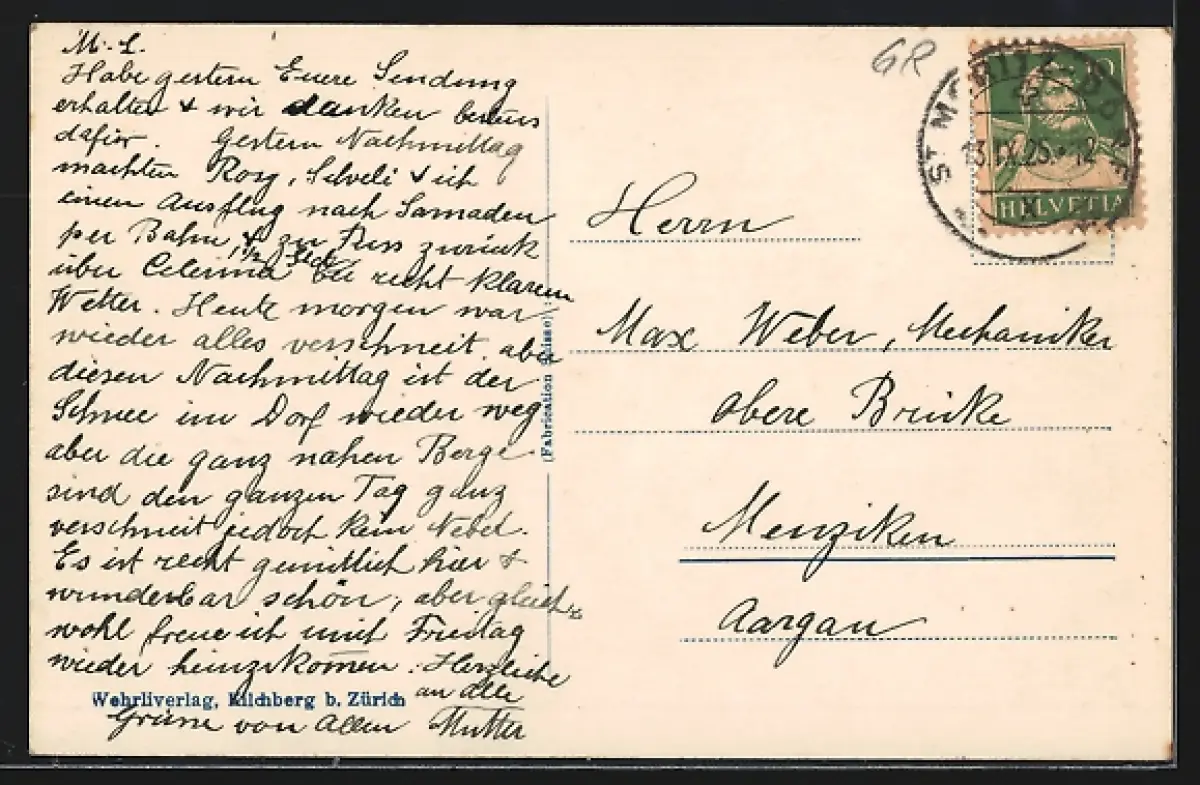 M. L.
Habe gestern Euere Sendung
erhalten & wir danken bestens
dafür. Gestern Nachmittag
machten Rosy, Silveli & ich
einen Ausflug nach Samaden
per Bahn, & zu Fuss zurück
1/2 Std.
über Celerina bei recht klarem
Wetter. Heute morgen war
wieder alles verschneit, aber
diesen Nachmittag ist der
Schnee im Dorf wieder weg
aber die ganz nahen Berge
sind den ganzen Tag ganz
verschneit jedoch kein Nebel.
Es ist recht gemütlich hier &
wunderbar schön, aber gleich=
wohl freue ich mich Freitag
wieder heimzukomen. Herzliche
an alle
Grüsse von Allen Mutter
Wehrliverlag, Kilchberg b. Zürich
(Fabrication Suisse)
GR
ST. MORITZ-DORF
13.IX.25.-12
10
HELVETIA
Herrn
Max Weber, Mechaniker
obere Brücke
Menziken
Aargau